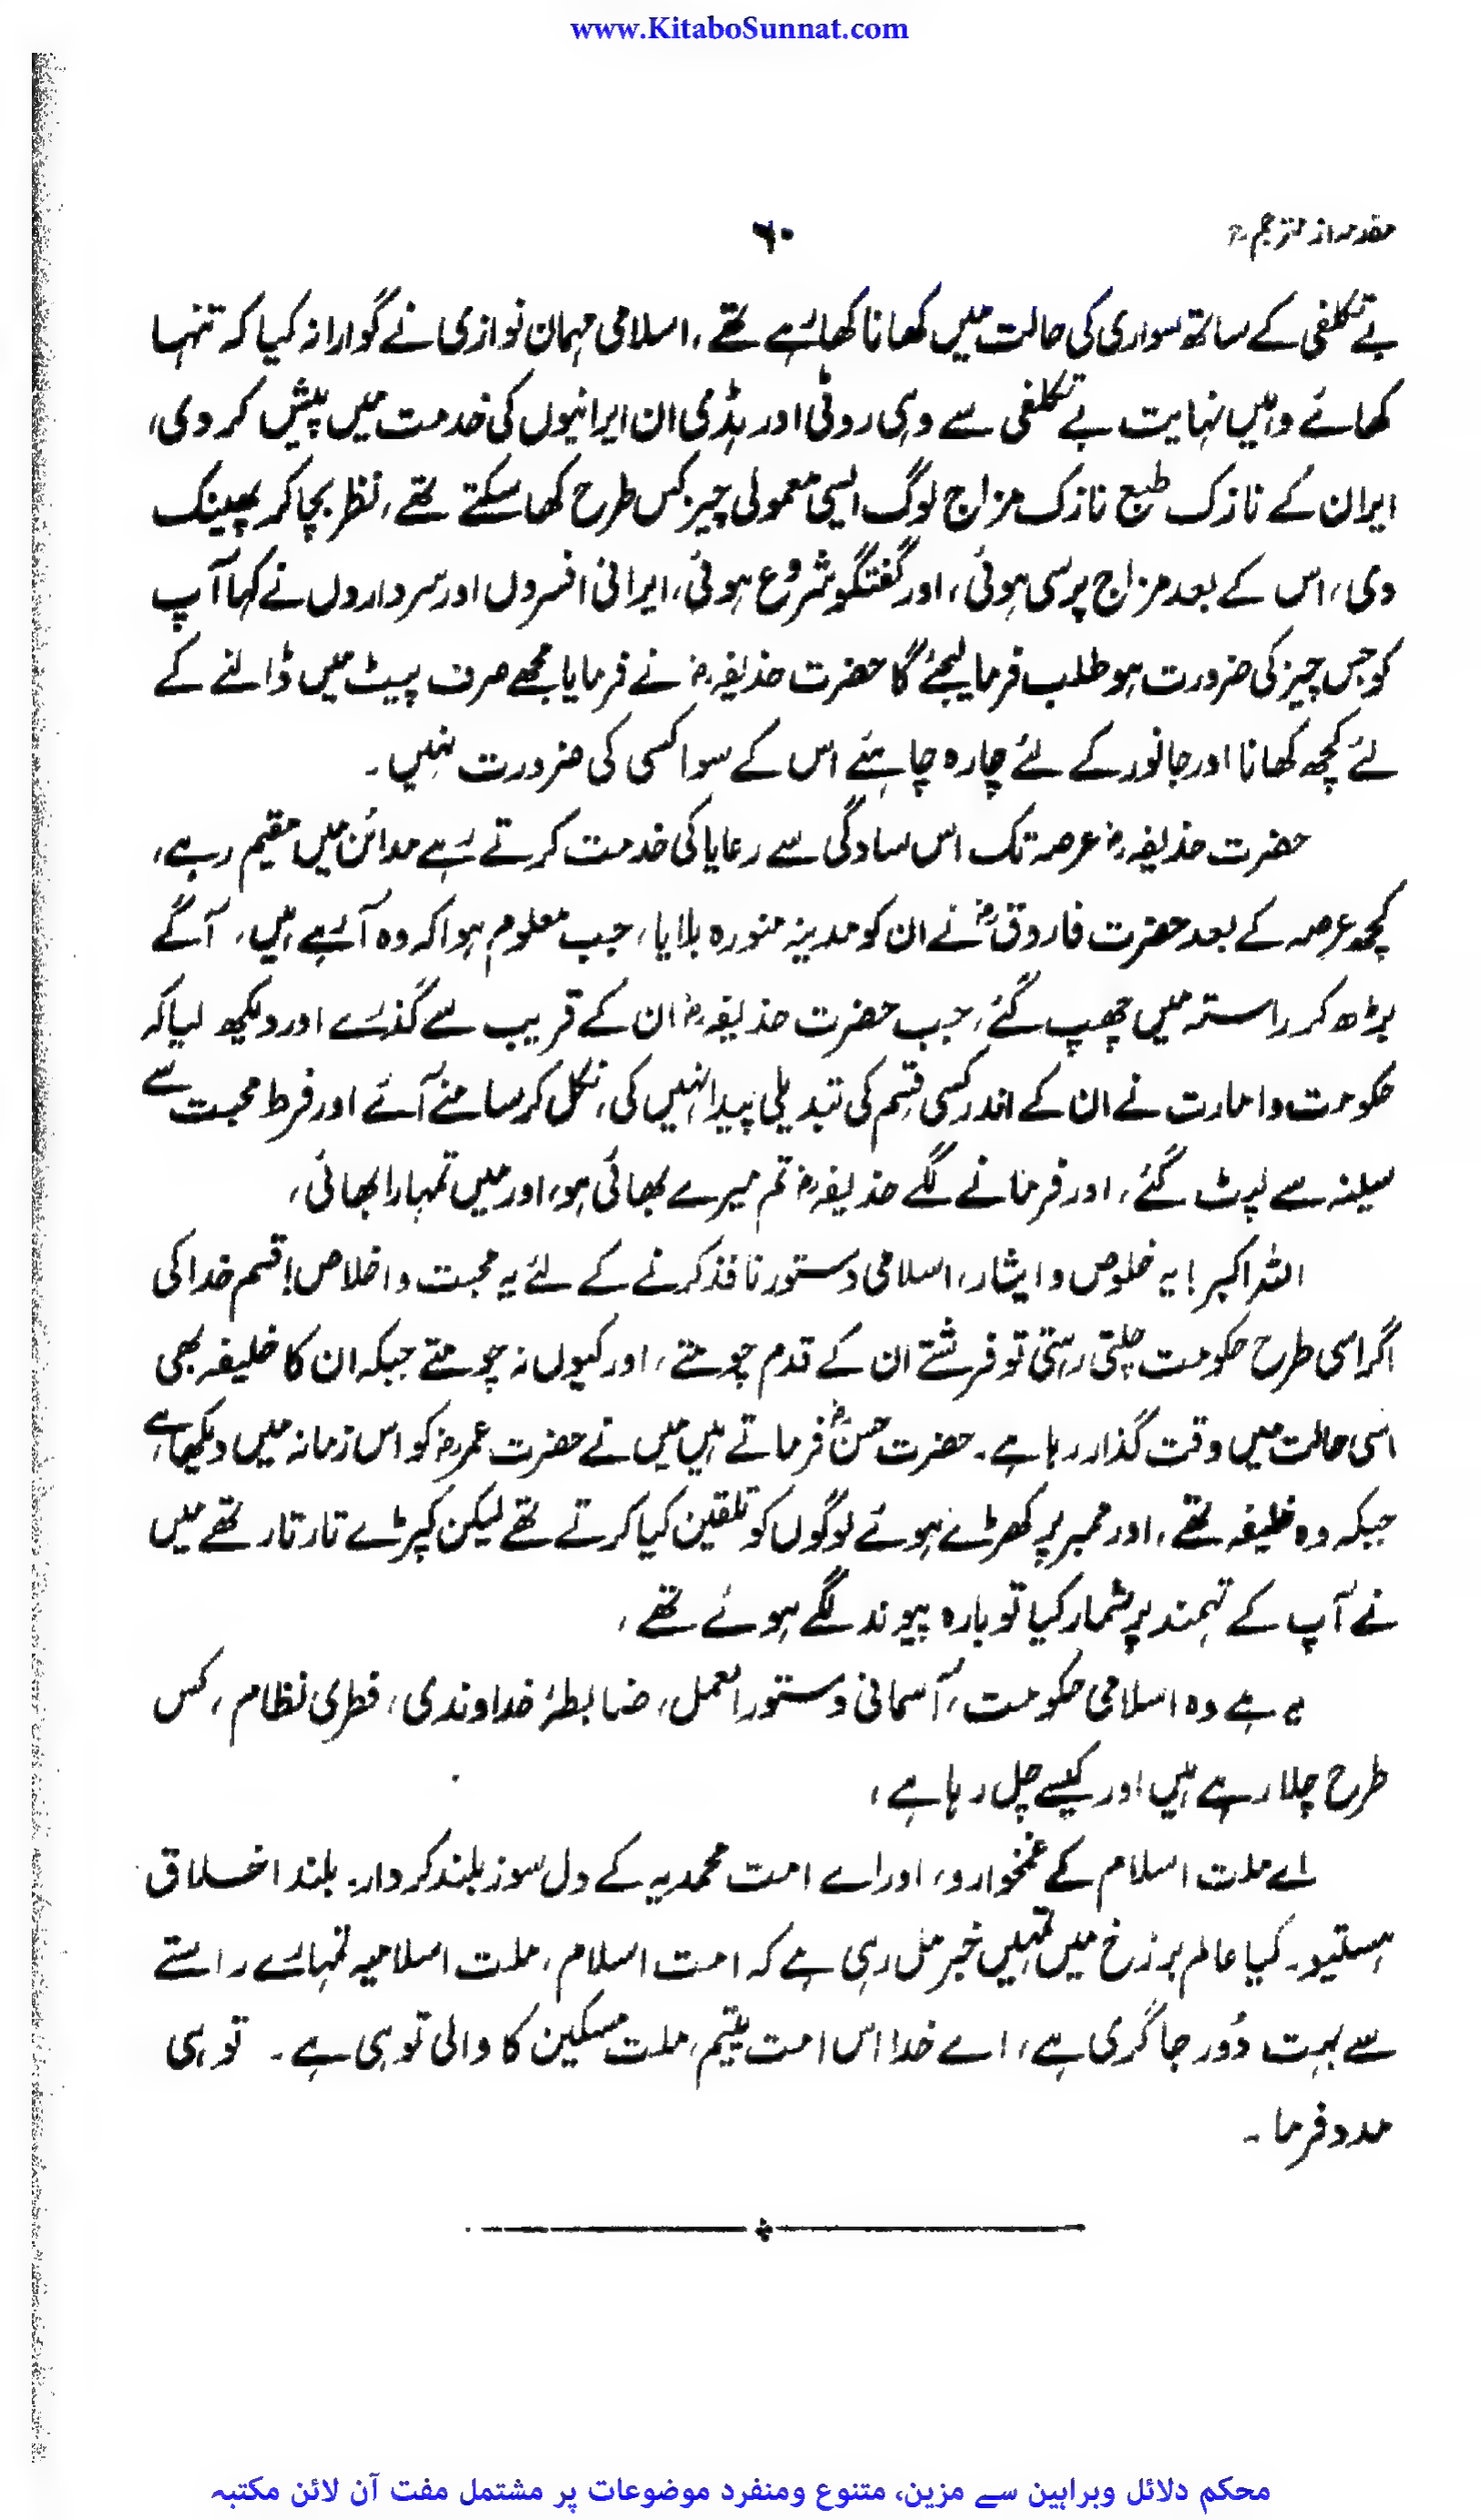 www.KitaboSunnat.com
مقدمہ از مترجم
۶۰
بے تکلفی کے ساتھ سواری کی حالت میں کھانا کھا رہے تھے، اسلامی مہمان نوازی نے گوارا نہ کیا کہ تنہا
کھائے وہیں نہایت بے تکلفی سے وہی روٹی اور ہڈی ان ایرانیوں کی خدمت میں پیش کر دی،
ایران کے نازک طبع نازک مزاج لوگ ایسی معمولی چیز کس طرح کھا سکتے تھے، نظر بچا کر پھینک
دی، اس کے بعد مزاج پرسی ہوئی، اور گفتگو شروع ہوئی، ایرانی افسروں اور سرداروں نے کہا آپ
کو جس چیز کی ضرورت ہو طلب فرما لیجئے گا حضرت حذیفہؓ نے فرمایا مجھے صرف پیٹ میں ڈالنے کے
لئے کچھ کھانا اور جانور کے لئے چارہ چاہئے اس کے سوا کسی کی ضرورت نہیں۔
حضرت حذیفہؓ عرصہ تک اس سادگی سے رعایا کی خدمت کرتے رہے مدائن میں مقیم رہے،
کچھ عرصہ کے بعد حضرت فاروقؓ نے ان کو مدینہ منورہ بلایا، جب معلوم ہوا کہ وہ آ رہے ہیں، آگے
بڑھ کر راستہ میں چھپ گئے، جب حضرت حذیفہؓ ان کے قریب سے گذرے اور دیکھ لیا کہ
حکومت و امارت نے ان کے اندر کسی قسم کی تبدیلی پیدا نہیں کی، نکل کر سامنے آئے اور فرط محبت سے
سینہ سے لپٹ گئے، اور فرمانے لگے حذیفہؓ تم میرے بھائی ہو، اور میں تمہارا بھائی،
اللہ اکبر! یہ خلوص و ایثار، اسلامی دستور نافذ کرنے کے لئے یہ محبت و اخلاص! قسم خدا کی
اگر اسی طرح حکومت چلتی رہتی تو فرشتے ان کے قدم چومتے، اور کیوں نہ چومتے جبکہ ان کا خلیفہ بھی
اسی حالت میں وقت گذار رہا ہے۔ حضرت حسنؓ فرماتے ہیں میں نے حضرت عمرؓ کو اس زمانہ میں دیکھا ہے
جبکہ وہ خلیفہ تھے، اور ممبر پر کھڑے ہوئے لوگوں کو تلقین کیا کرتے تھے لیکن کپڑے تار تار تھے میں
نے آپ کے تہمند پر شمار کیا تو بارہ پیوند لگے ہوئے تھے،
یہ ہے وہ اسلامی حکومت، آسمانی دستور العمل، ضابطۂ خداوندی، فطری نظام، کس
طرح چلا رہے ہیں اور کیسے چل رہا ہے،
اے ملت اسلام کے غمخوارو، اور اے امت محمدیہ کے دل سوز بلند کردار۔ بلند اخلاق
ہستیو۔ کیا عالم برزخ میں تمہیں خبر مل رہی ہے کہ امت اسلام، ملت اسلامیہ تمہارے راستے
سے بہت دُور جا گری ہے، اے خدا اس امت یتیم، ملت مسکین کا والی تو ہی ہے۔ تو ہی
مدد فرما۔
محکم دلائل وبراہین سے مزین، متنوع ومنفرد موضوعات پر مشتمل مفت آن لائن مکتبہ